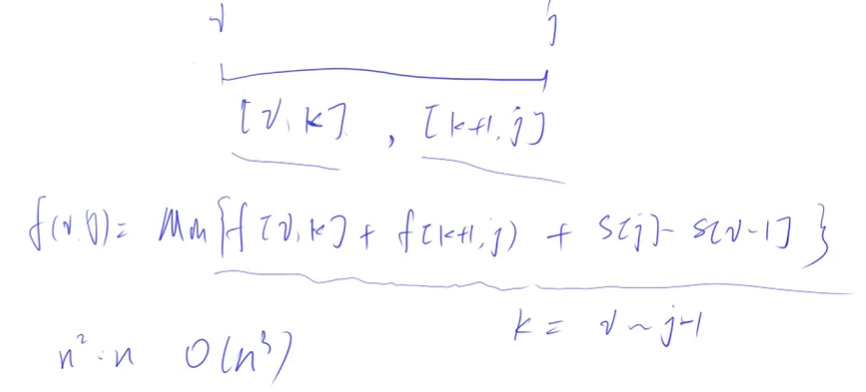 i j
[i, k] , [k+1, j]
f(i, j) = Min{f[i, k] + f[k+1, j) + S[j] - S[i-1]}
k = i ~ j-1
n²·n O(n³)